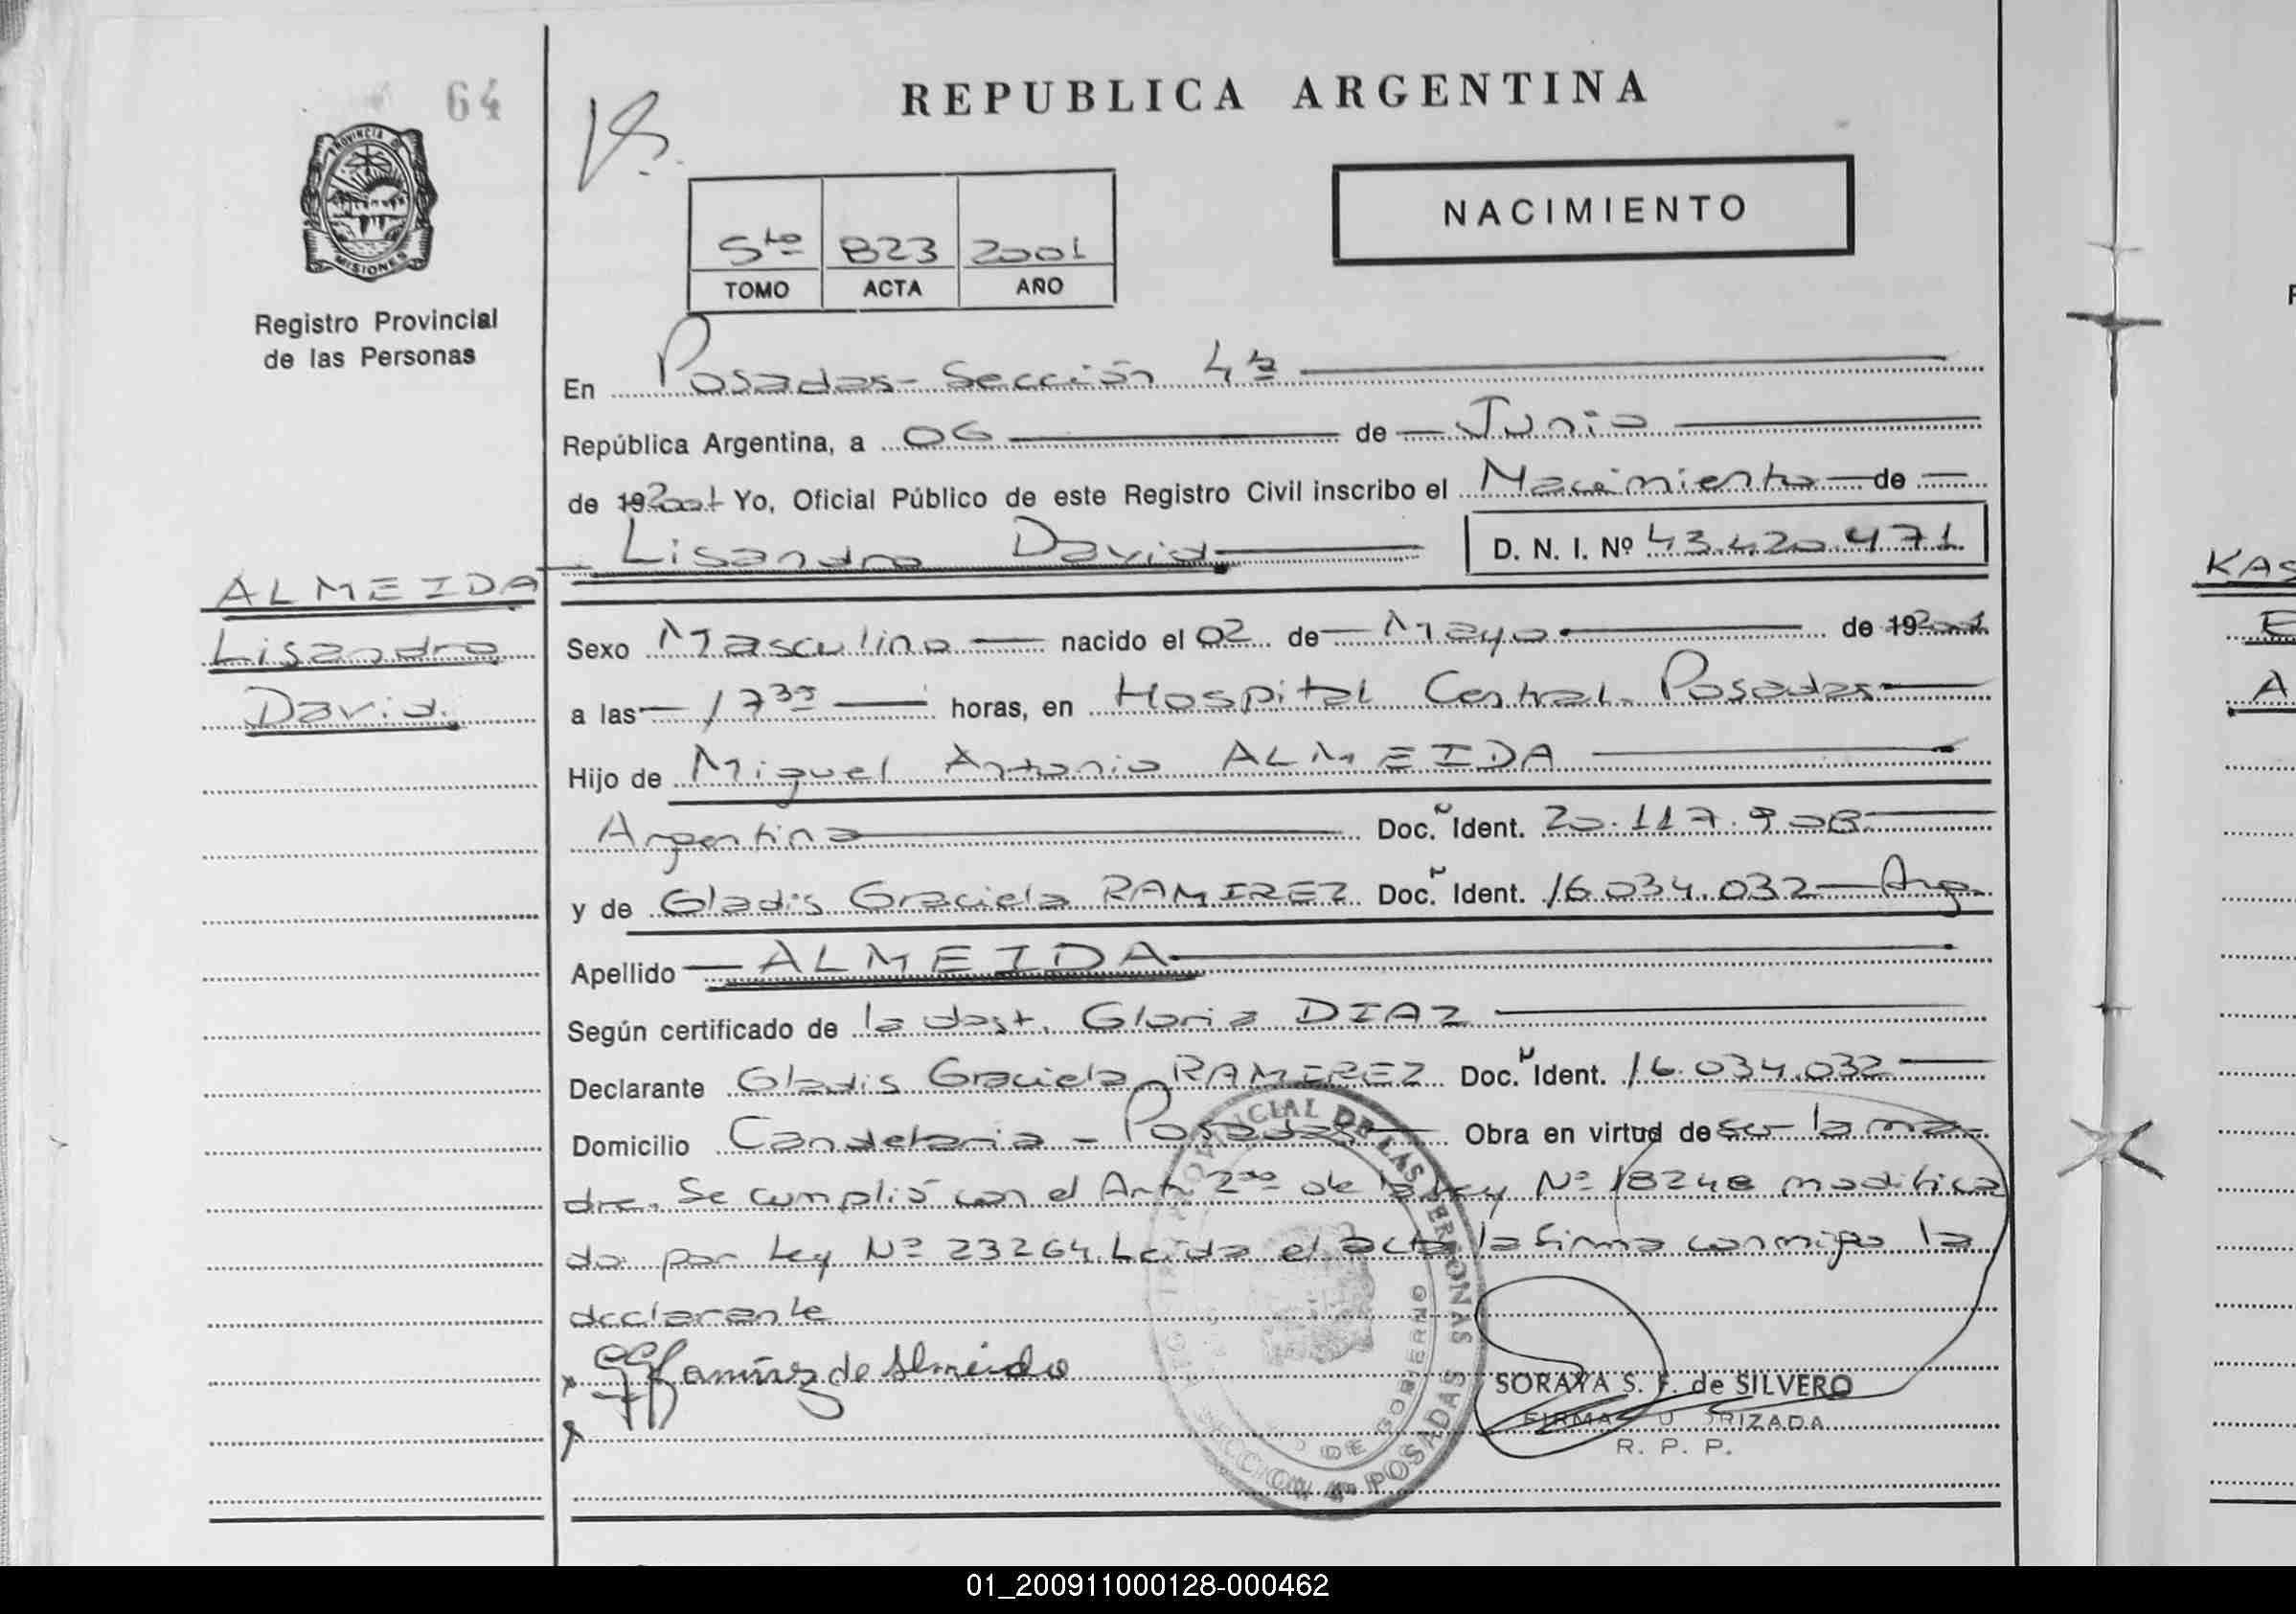 64
REPUBLICA ARGENTINA
PROVINCIA DE
MISIONES
NACIMIENTO
5to 823 2001
TOMO ACTA AÑO
Registro Provincial
de las Personas
En Posadas - Sección 4ª
República Argentina, a 06 de Junio
de 192001 Yo, Oficial Público de este Registro Civil inscribo el Nacimiento de
Lisandro David D. N. I. Nº 43.420.471
ALMEIDA
Lisandro
David.
Sexo Masculino nacido el 02 de Mayo de 192001
a las 17 35 horas, en Hospital Central - Posadas
Hijo de Miguel Antonio ALMEIDA
Argentina Doc. Ident. 20.117.908
y de Gladis Graciela RAMIREZ Doc. Ident. 16.034.032 Arg.
Apellido ALMEIDA
Según certificado de la obst. Gloria DIAZ
Declarante Gladis Graciela RAMIREZ Doc. Ident. 16.034.032
Domicilio Candelaria - Posadas Obra en virtud de ser la ma-
dre. Se cumplió con el Art. 2do de la Ley Nº 18248 modifica
do por Ley Nº 23264. Leída el acta la firma conmigo la
declarante
GGRamírez de Almeida
SORAYA S. F. de SILVERO
FIRMA AUTORIZADA
R. P. P.
PROVINCIAL DE LAS PERSONAS
DE GOBIERNO
SECCION 4ª POSADAS
KAS
01_200911000128-000462